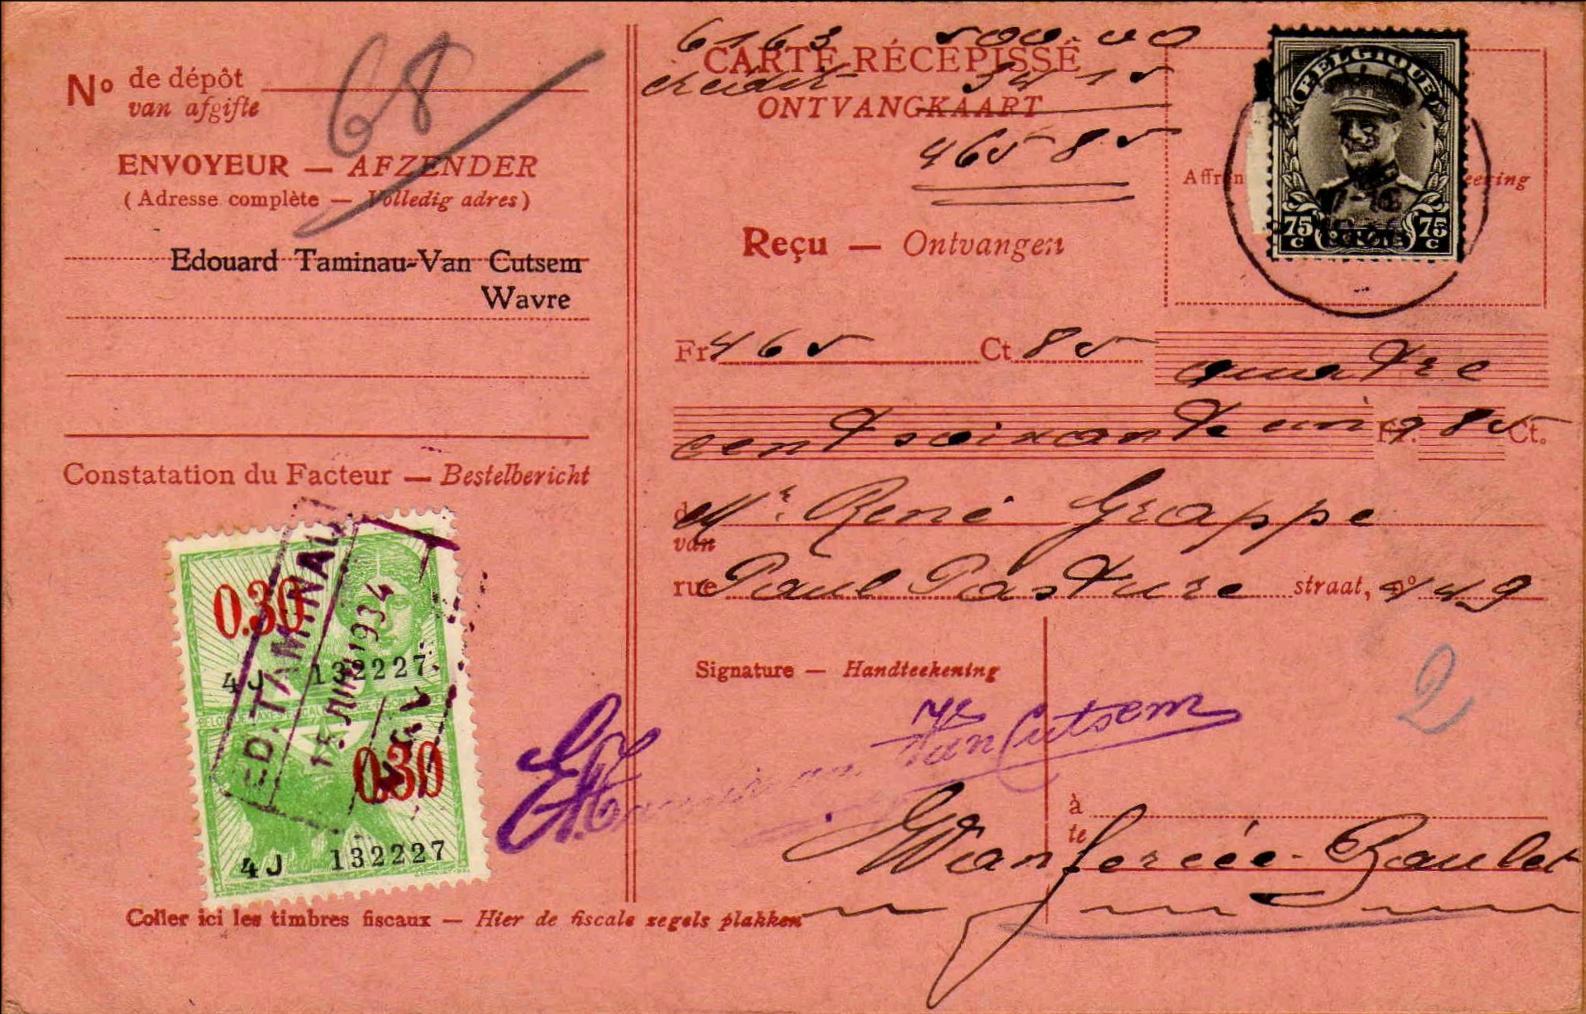 Nº de dépôt
van afgifte
68
ENVOYEUR — AFZENDER
(Adresse complète — Volledig adres)
Edouard Taminau-Van Cutsem
Wavre
Constatation du Facteur — Bestelbericht
0.30
4J 132227
ED. TAMINAU
15 JUIN 1934
0.30
4J 132227
Coller ici les timbres fiscaux — Hier de fiscale zegels plakken
6163 500-00
CARTE RÉCÉPISSÉ
crédit 34 15
ONTVANGKAART
465 85
BELGIQUE
75 C 75 C
BELGIË
Reçu — Ontvangen
Fr. 465 Ct. 85 quatre
cent soixante cinq Fr. 85 Ct.
de Mr. René Grappe
van
rue Paul Pasture straat, nº 149
Signature — Handteekening
2
Van Cutsem
à
te
Wanfercée-Baulet